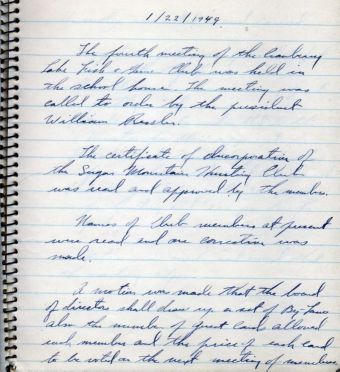 1/22/1949.
The fourth meeting of the Cranberry
Lake Fish & Game Club was held in
the school house. The meeting was
called to order by the president
William
The certificate of Incorporation of
the Sugar Mountain Hunting Club
was read and approved by the members.
Names of Club members at present
were read and one correction was
made.
A motion was made that the board
of directors shall draw up a set of By-Laws
also the number of guest cards allowed
each member and the price of each card
to be voted on the next meeting of members